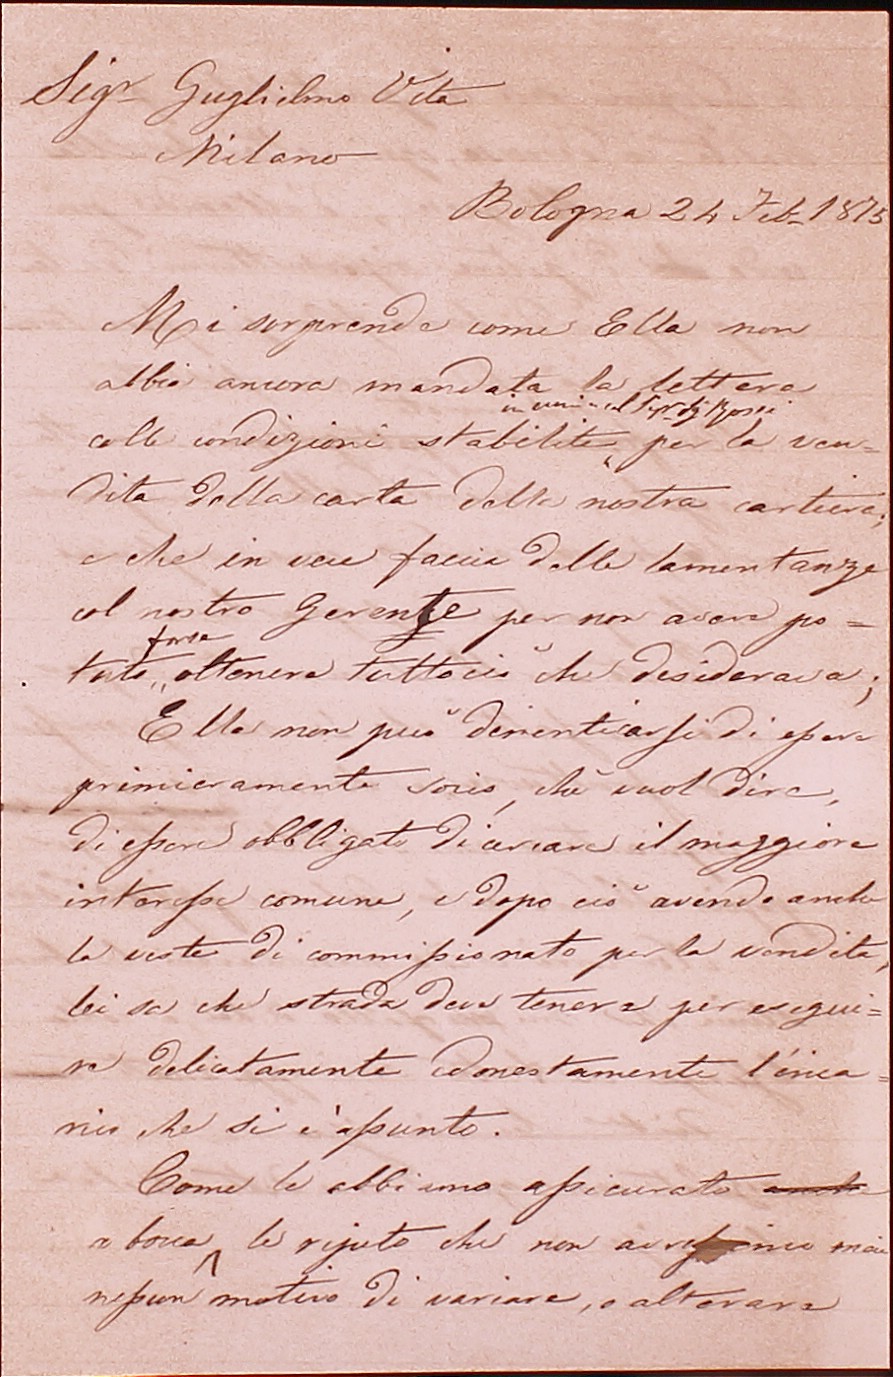 Sigr Guglielmo Vita
Milano
Bologna 24 Feb 1875
Mi sorprende come Ella non
abbia ancora mandata la lettera
colle condizioni stabilite per la ven=
dita della carta della nostra cartiera;
e che in vece faccia delle lamentanze
col nostro Gerente per non avere po=
forse
tuto ottenere tuttociò che desiderava;
Ella non può dimenticarsi di essere
primieramente socio, che vuol dire,
di essere obbligato di cercare il maggiore
interesse comune, e dopo ciò avendo anche
la veste di commissionato per la vendita,
lei sa che strada deve tenere per esegui=
re delicatamente ed onestamente l'inca=
rico che si è assunto.
Come le abbiamo assicurato anche
a bocca le ripeto che non avressimo mai
nessun motivo di variare, o alterare